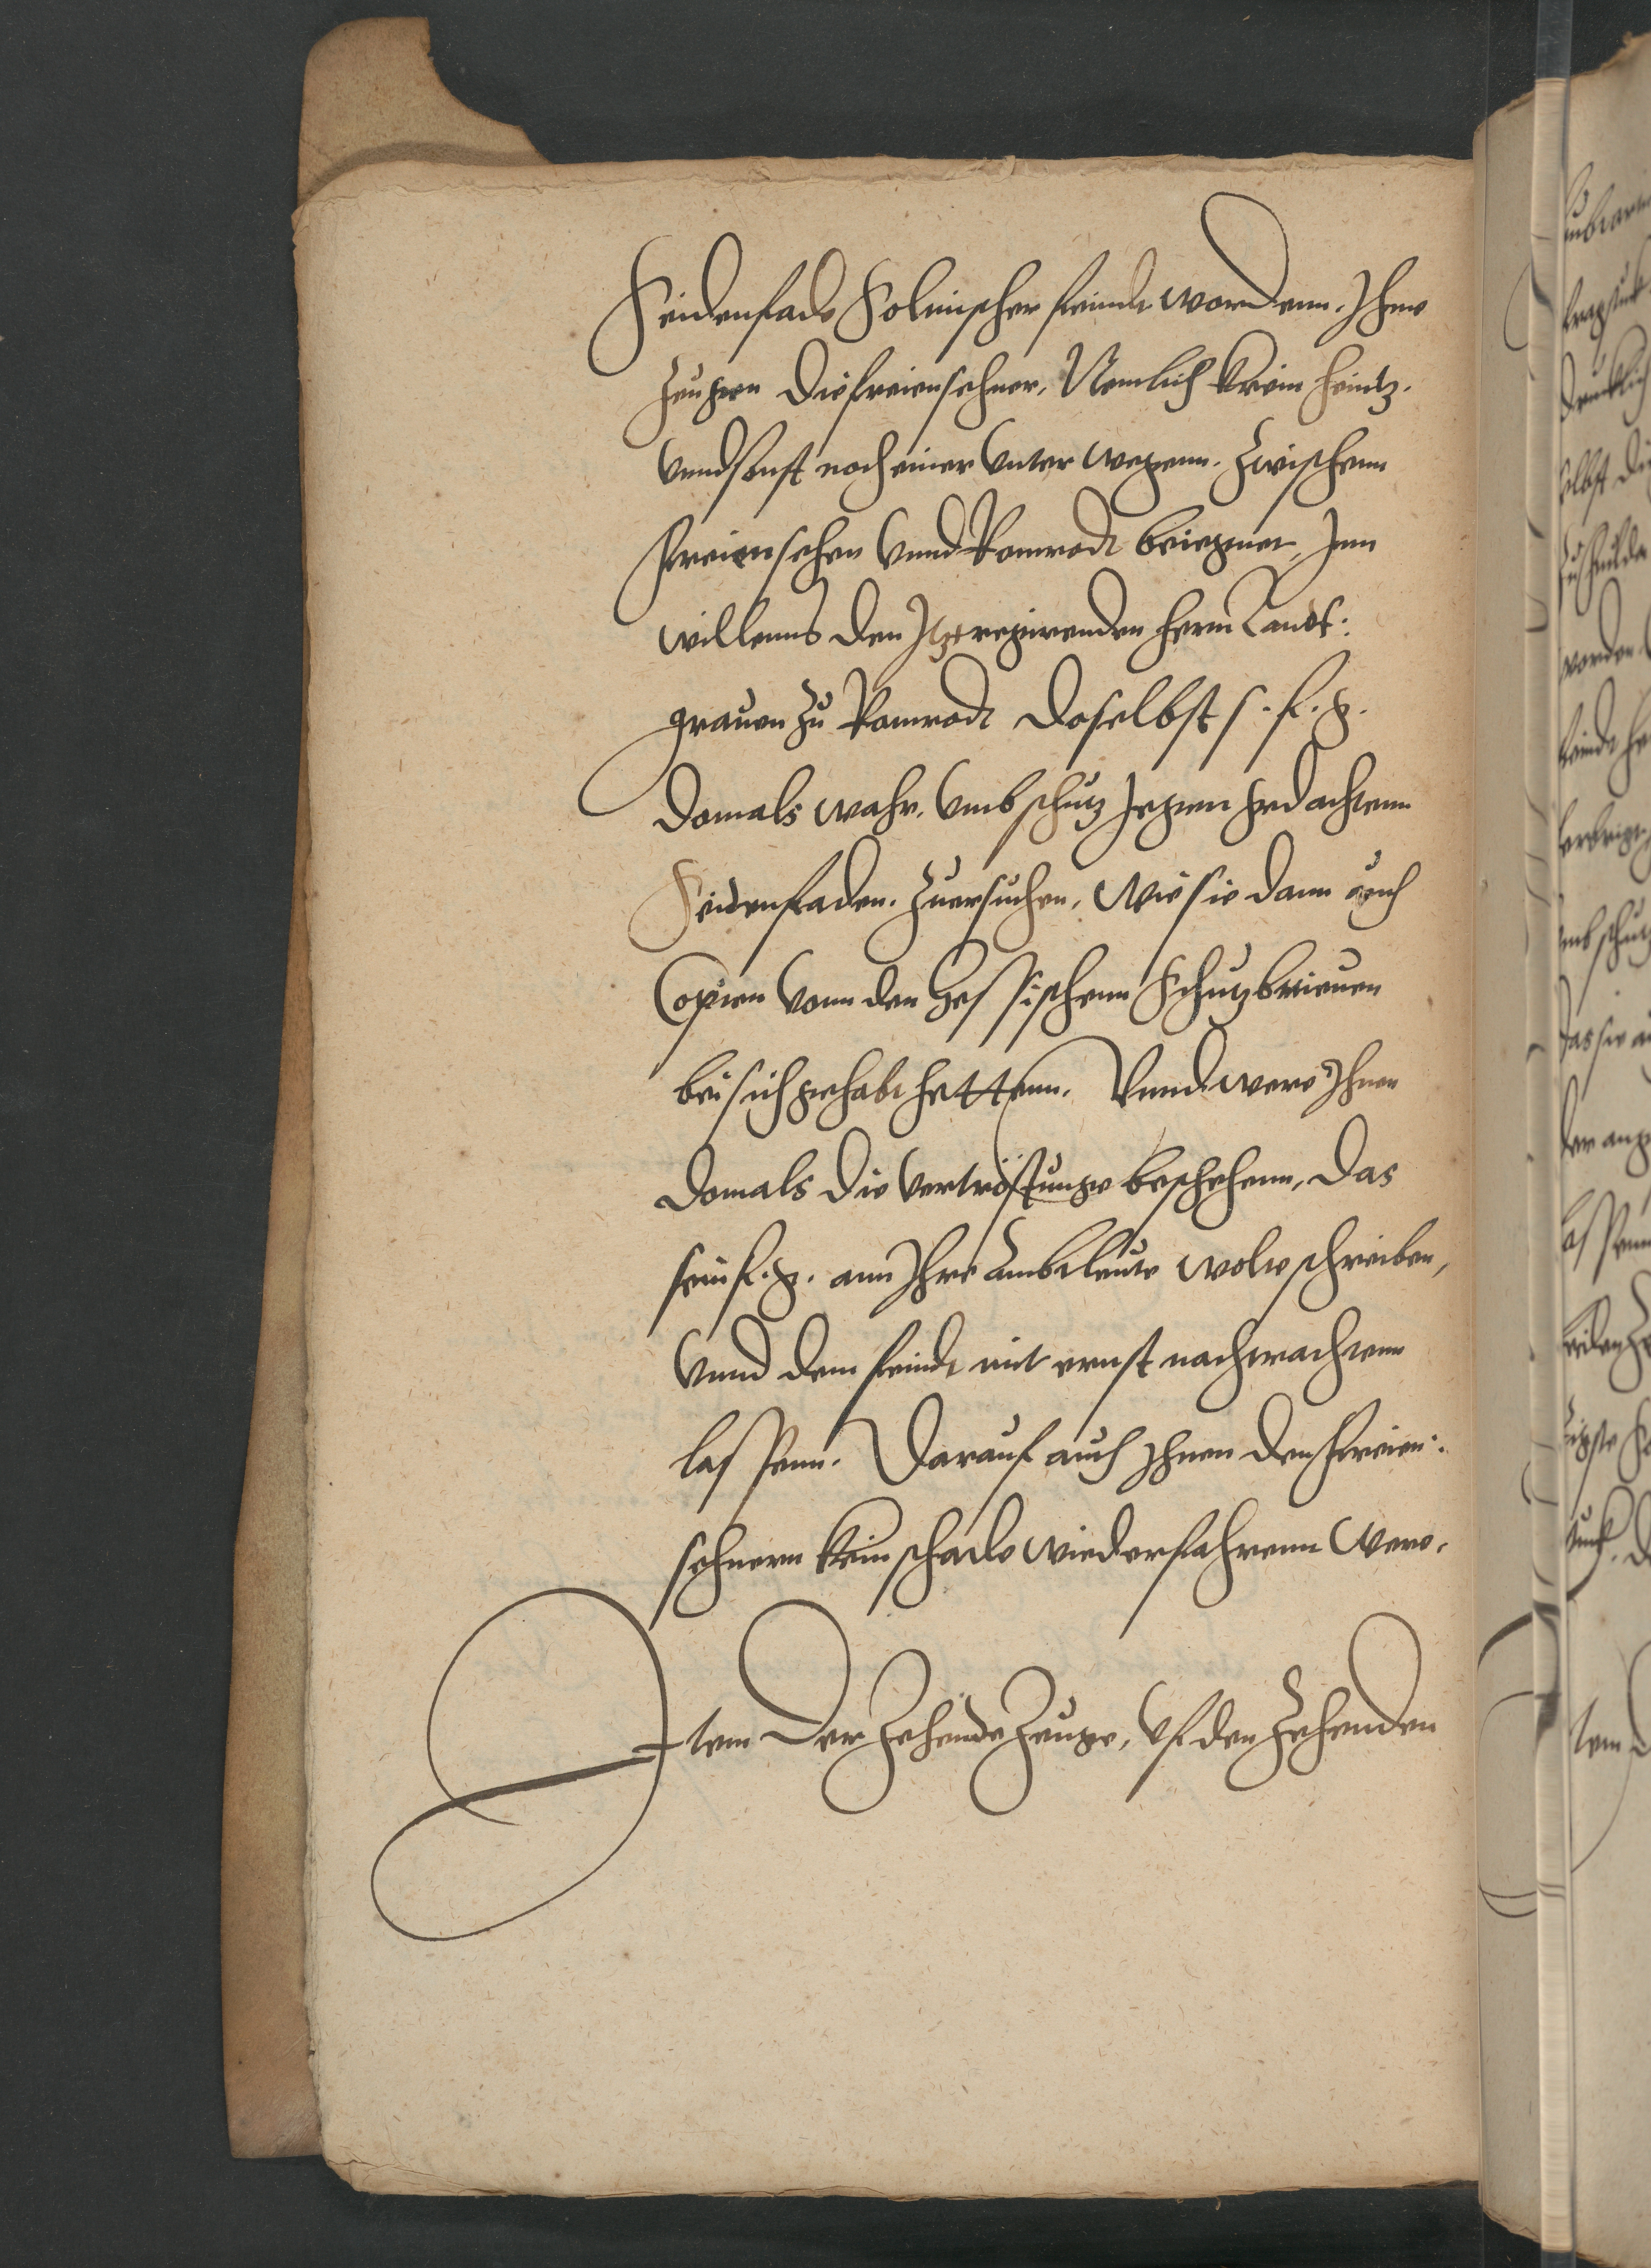 Seidenfade Folmischer feindt wordenn. Ihme
zeugen die freiensehner, Nemlich Krein heintz.
Vnnd sonst noch einer Vnter wegenn. Zwischenn
freiensehen Vnnd Romrodt beiegnet, Inn
willenns den Itztregirenden herrn Landt:
grauen zu Romrodt doselbst s. f. g.
domals wahr. Vmb schutz Jegen gedachtenn
Seidenfaden. Zuersuchen, Wie sie dann auch
Copien Vonn den Hessischenn Schutzbrieuen
bei sich gehabt hettenn. Vnnd were Ihnen
domals die Vertröstunge beschehenn, das
sein f. g. ann Ihre Ambtleute wolte schreiben,
Vnnd dem feindt mit ernst nachtrachtenn
lassenn. Darauf auch Ihnen den freien:
sehnern kein schade wiederfahrenn Were.
Item Der Zehende Zeuge, Vf den Zehenden